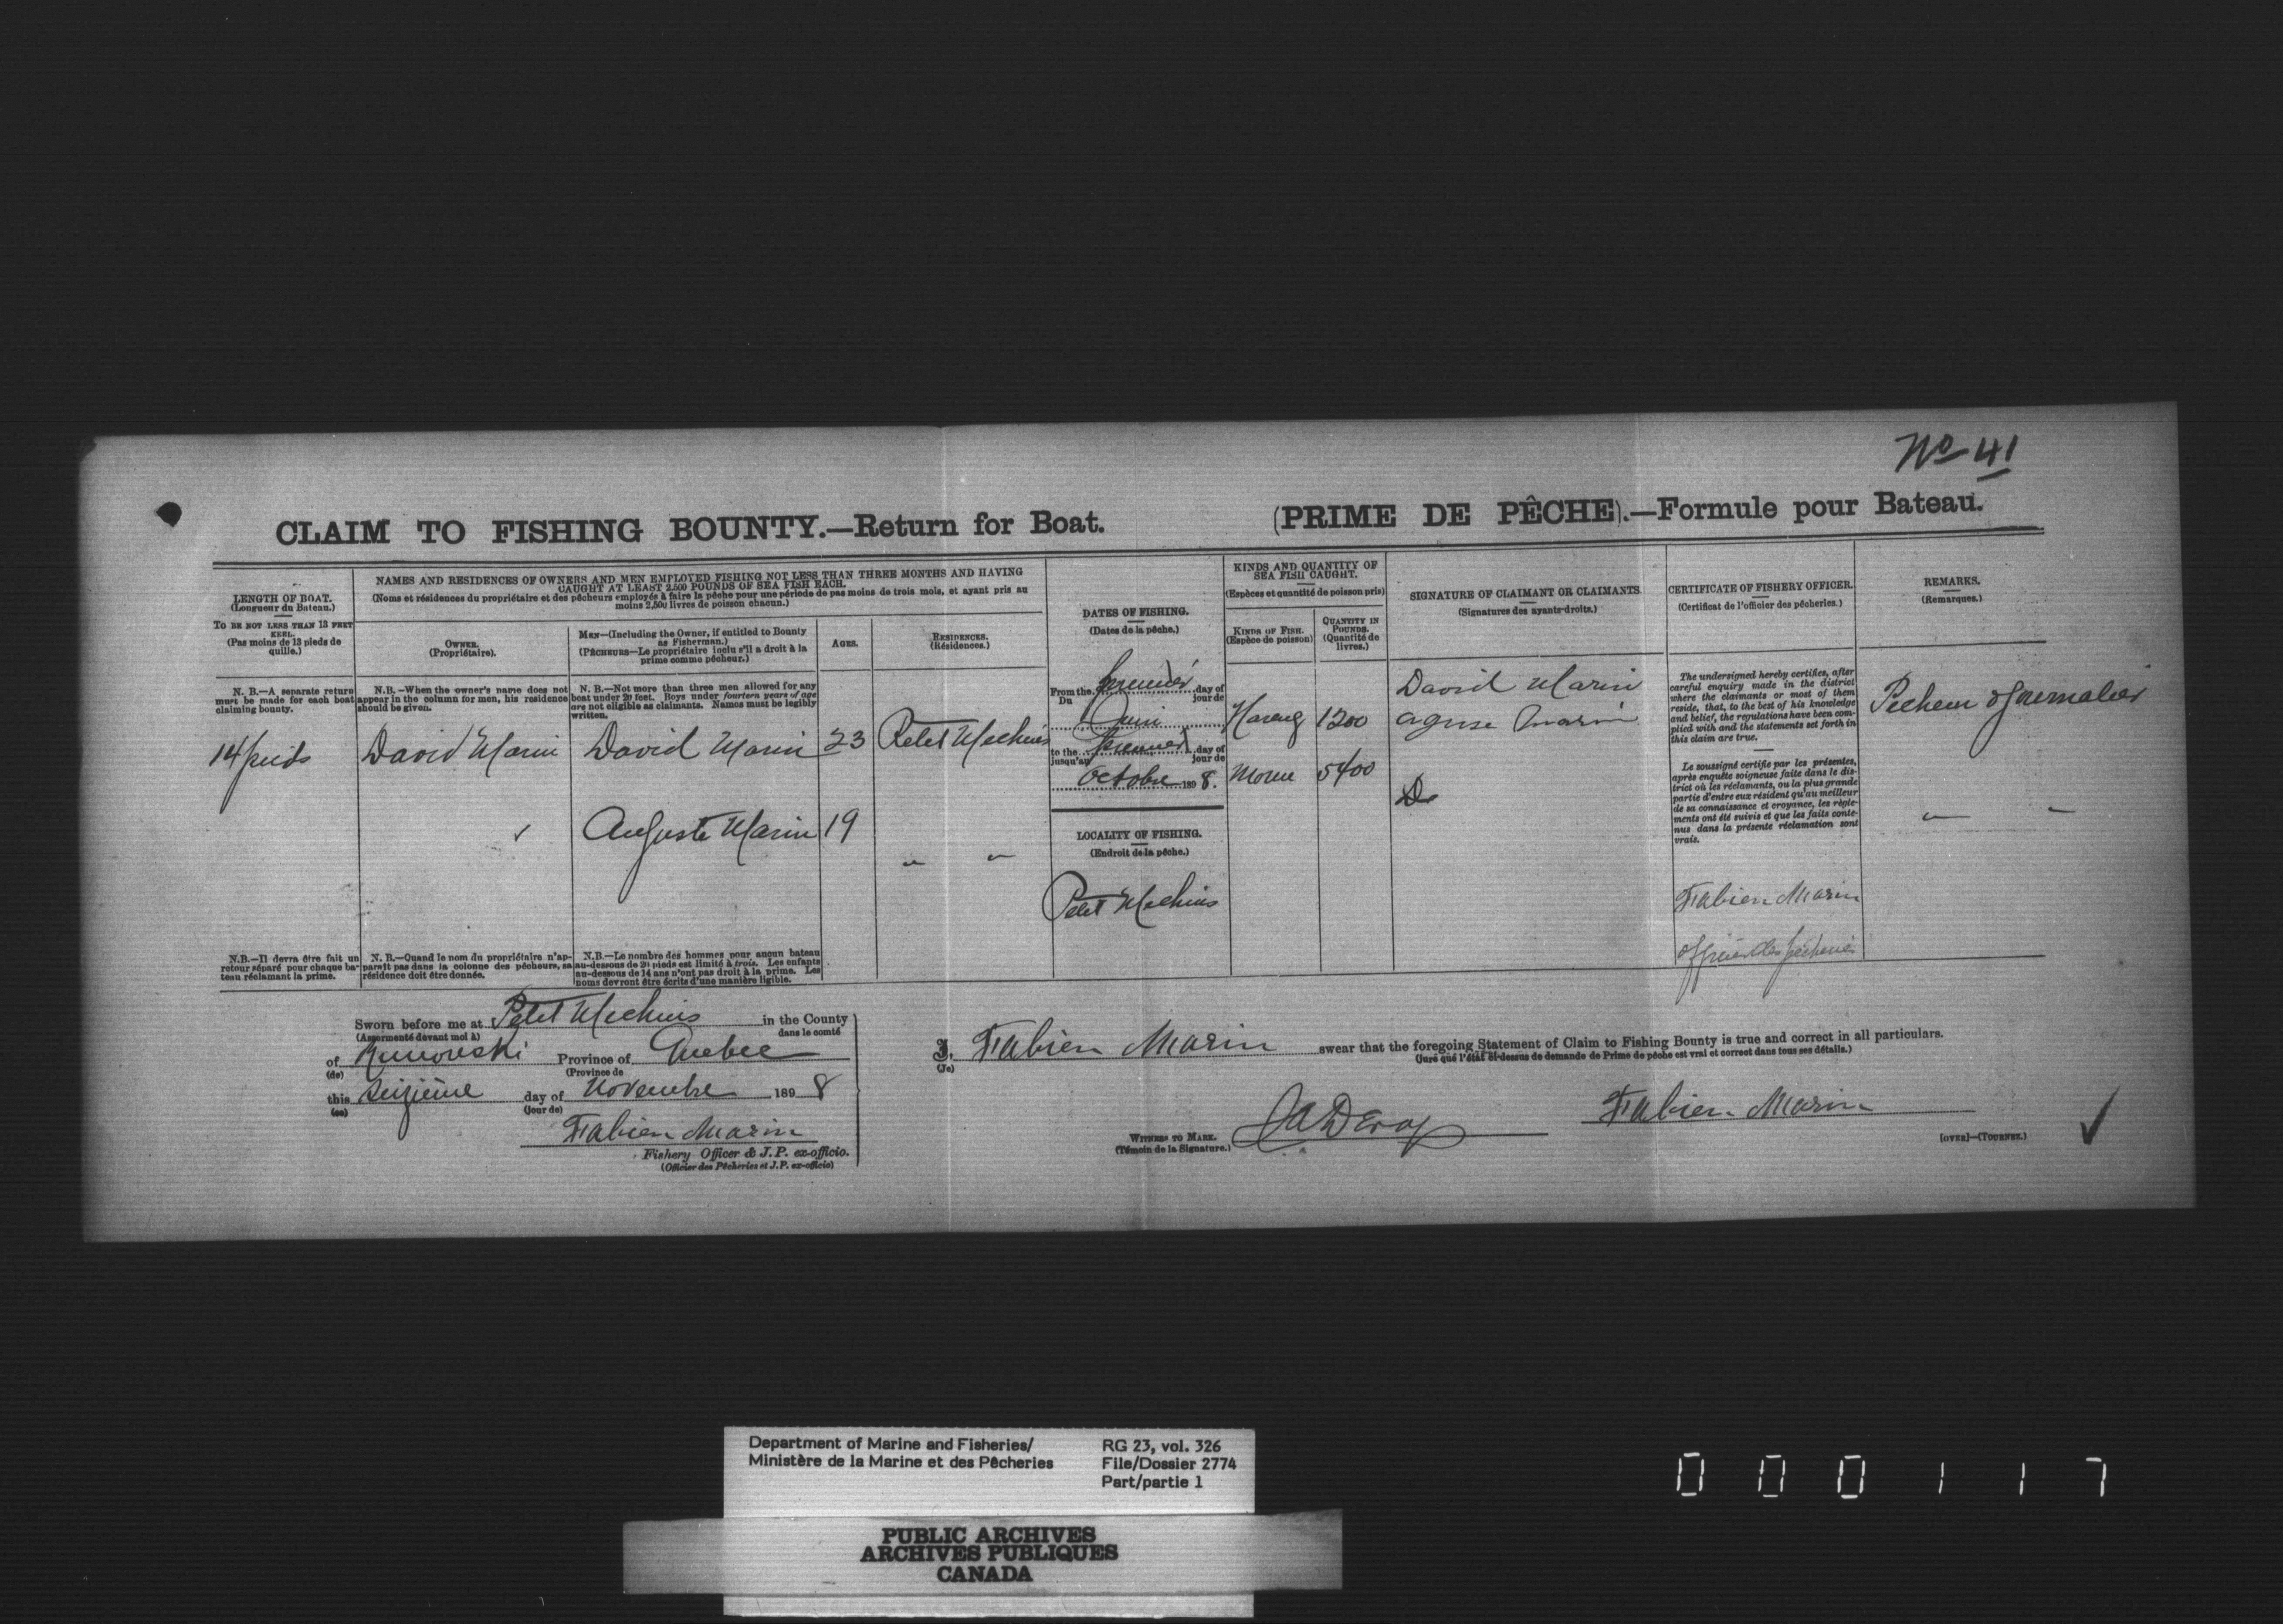 No 41
CLAIM TO FISHING BOUNTY.—Return for Boat. (PRIME DE PÊCHE).—Formule pour Bateau.
LENGTH OF BOAT.
(Longueur du Bateau.)
TO BE NOT LESS THAN 13 FEET
KEEL.
(Pas moins de 13 pieds de
quille.)
NAMES AND RESIDENCES OF OWNERS AND MEN EMPLOYED FISHING NOT LESS THAN THREE MONTHS AND HAVING
CAUGHT AT LEAST 2,500 POUNDS OF SEA FISH EACH.
(Noms et résidences du propriétaire et des pêcheurs employés à faire la pêche pour une période de pas moins de trois mois, et ayant pris au
moins 2,500 livres de poisson chacun.)
OWNER.
(Propriétaire).
MEN—(Including the Owner, if entitled to Bounty
as Fisherman.)
(PÊCHEURS—Le propriétaire inclu s'il a droit à la
prime comme pêcheur.)
AGES.
RESIDENCES.
(Résidences.)
DATES OF FISHING.
(Dates de la pêche.)
KINDS AND QUANTITY OF
SEA FISH CAUGHT.
(Espèces et quantité de poisson pris)
KINDS OF FISH.
(Espèce de poisson)
QUANTITY IN
POUNDS.
(Quantité de
livres.)
SIGNATURE OF CLAIMANT OR CLAIMANTS
(Signatures des ayants-droits.)
CERTIFICATE OF FISHERY OFFICER.
(Certificat de l'officier des pêcheries.)
REMARKS.
(Remarques.)
N. B.—A separate return
must be made for each boat
claiming bounty.
N.B.—When the owner's name does not
appear in the column for men, his residence
should be given.
N. B.—Not more than three men allowed for any
boat under 20 feet. Boys under fourteen years of age
are not eligible as claimants. Names must be legibly
written.
14 pieds
David Marin
David Marin
23
Petit Mechins
Auguste Marin
19
" "
From the premier day of
Du jour de
Juin
to the premier day of
jusqu'au jour de
Octobre 1898.
LOCALITY OF FISHING.
(Endroit de la pêche.)
Petit Mechins
Hareng 1200
Morue 5400
David Marin
aguse marin
D
The undersigned hereby certifies, after
careful enquiry made in the district
where the claimants or most of them
reside, that, to the best of his knowledge
and belief, the regulations have been com-
plied with and the statements set forth in
this claim are true.
Le soussigné certifie par les présentes,
après enquête soigneuse faite dans le dis-
trict où les réclamants, ou la plus grande
partie d'entre eux résident qu'au meilleur
de sa connaissance et croyance, les règle-
ments ont été suivis et que les faits conte-
nus dans la présente réclamation sont
vrais.
Fabien Marin
officier des pêcheries
Pecheur & Journalier
" "
N.B.—Il devra être fait un
retour séparé pour chaque ba-
teau réclamant la prime.
N. B.—Quand le nom du propriétaire n'ap-
paraît pas dans la colonne des pêcheurs, sa
résidence doit être donnée.
N.B.—Le nombre des hommes pour aucun bateau
au-dessous de 20 pieds est limité à trois. Les enfants
au-dessous de 14 ans n'ont pas droit à la prime. Les
noms devront être écrits d'une manière lisible.
Sworn before me at Petit Mechins in the County
(Assermenté devant moi à) dans le comté
of Rimouski Province of Quebec
(de) (Province de
this seizième day of Novembre 1898
(ce) (jour de)
Fabien Marin
Fishery Officer & J.P. ex-officio.
(Officier des Pêcheries et J.P. ex-officio)
I, Fabien Marin swear that the foregoing Statement of Claim to Fishing Bounty is true and correct in all particulars.
(Je) (Jure que l'état ci-dessus de demande de Prime de pêche est vrai et correct dans tous ses détails.)
WITNESS TO MARK.
(Témoin de la Signature.)
Fabien Marin
[OVER]—(TOURNEZ.)
Department of Marine and Fisheries/
Ministère de la Marine et des Pêcheries
RG 23, vol. 326
File/Dossier 2774
Part/partie 1
PUBLIC ARCHIVES
ARCHIVES PUBLIQUES
CANADA
000117